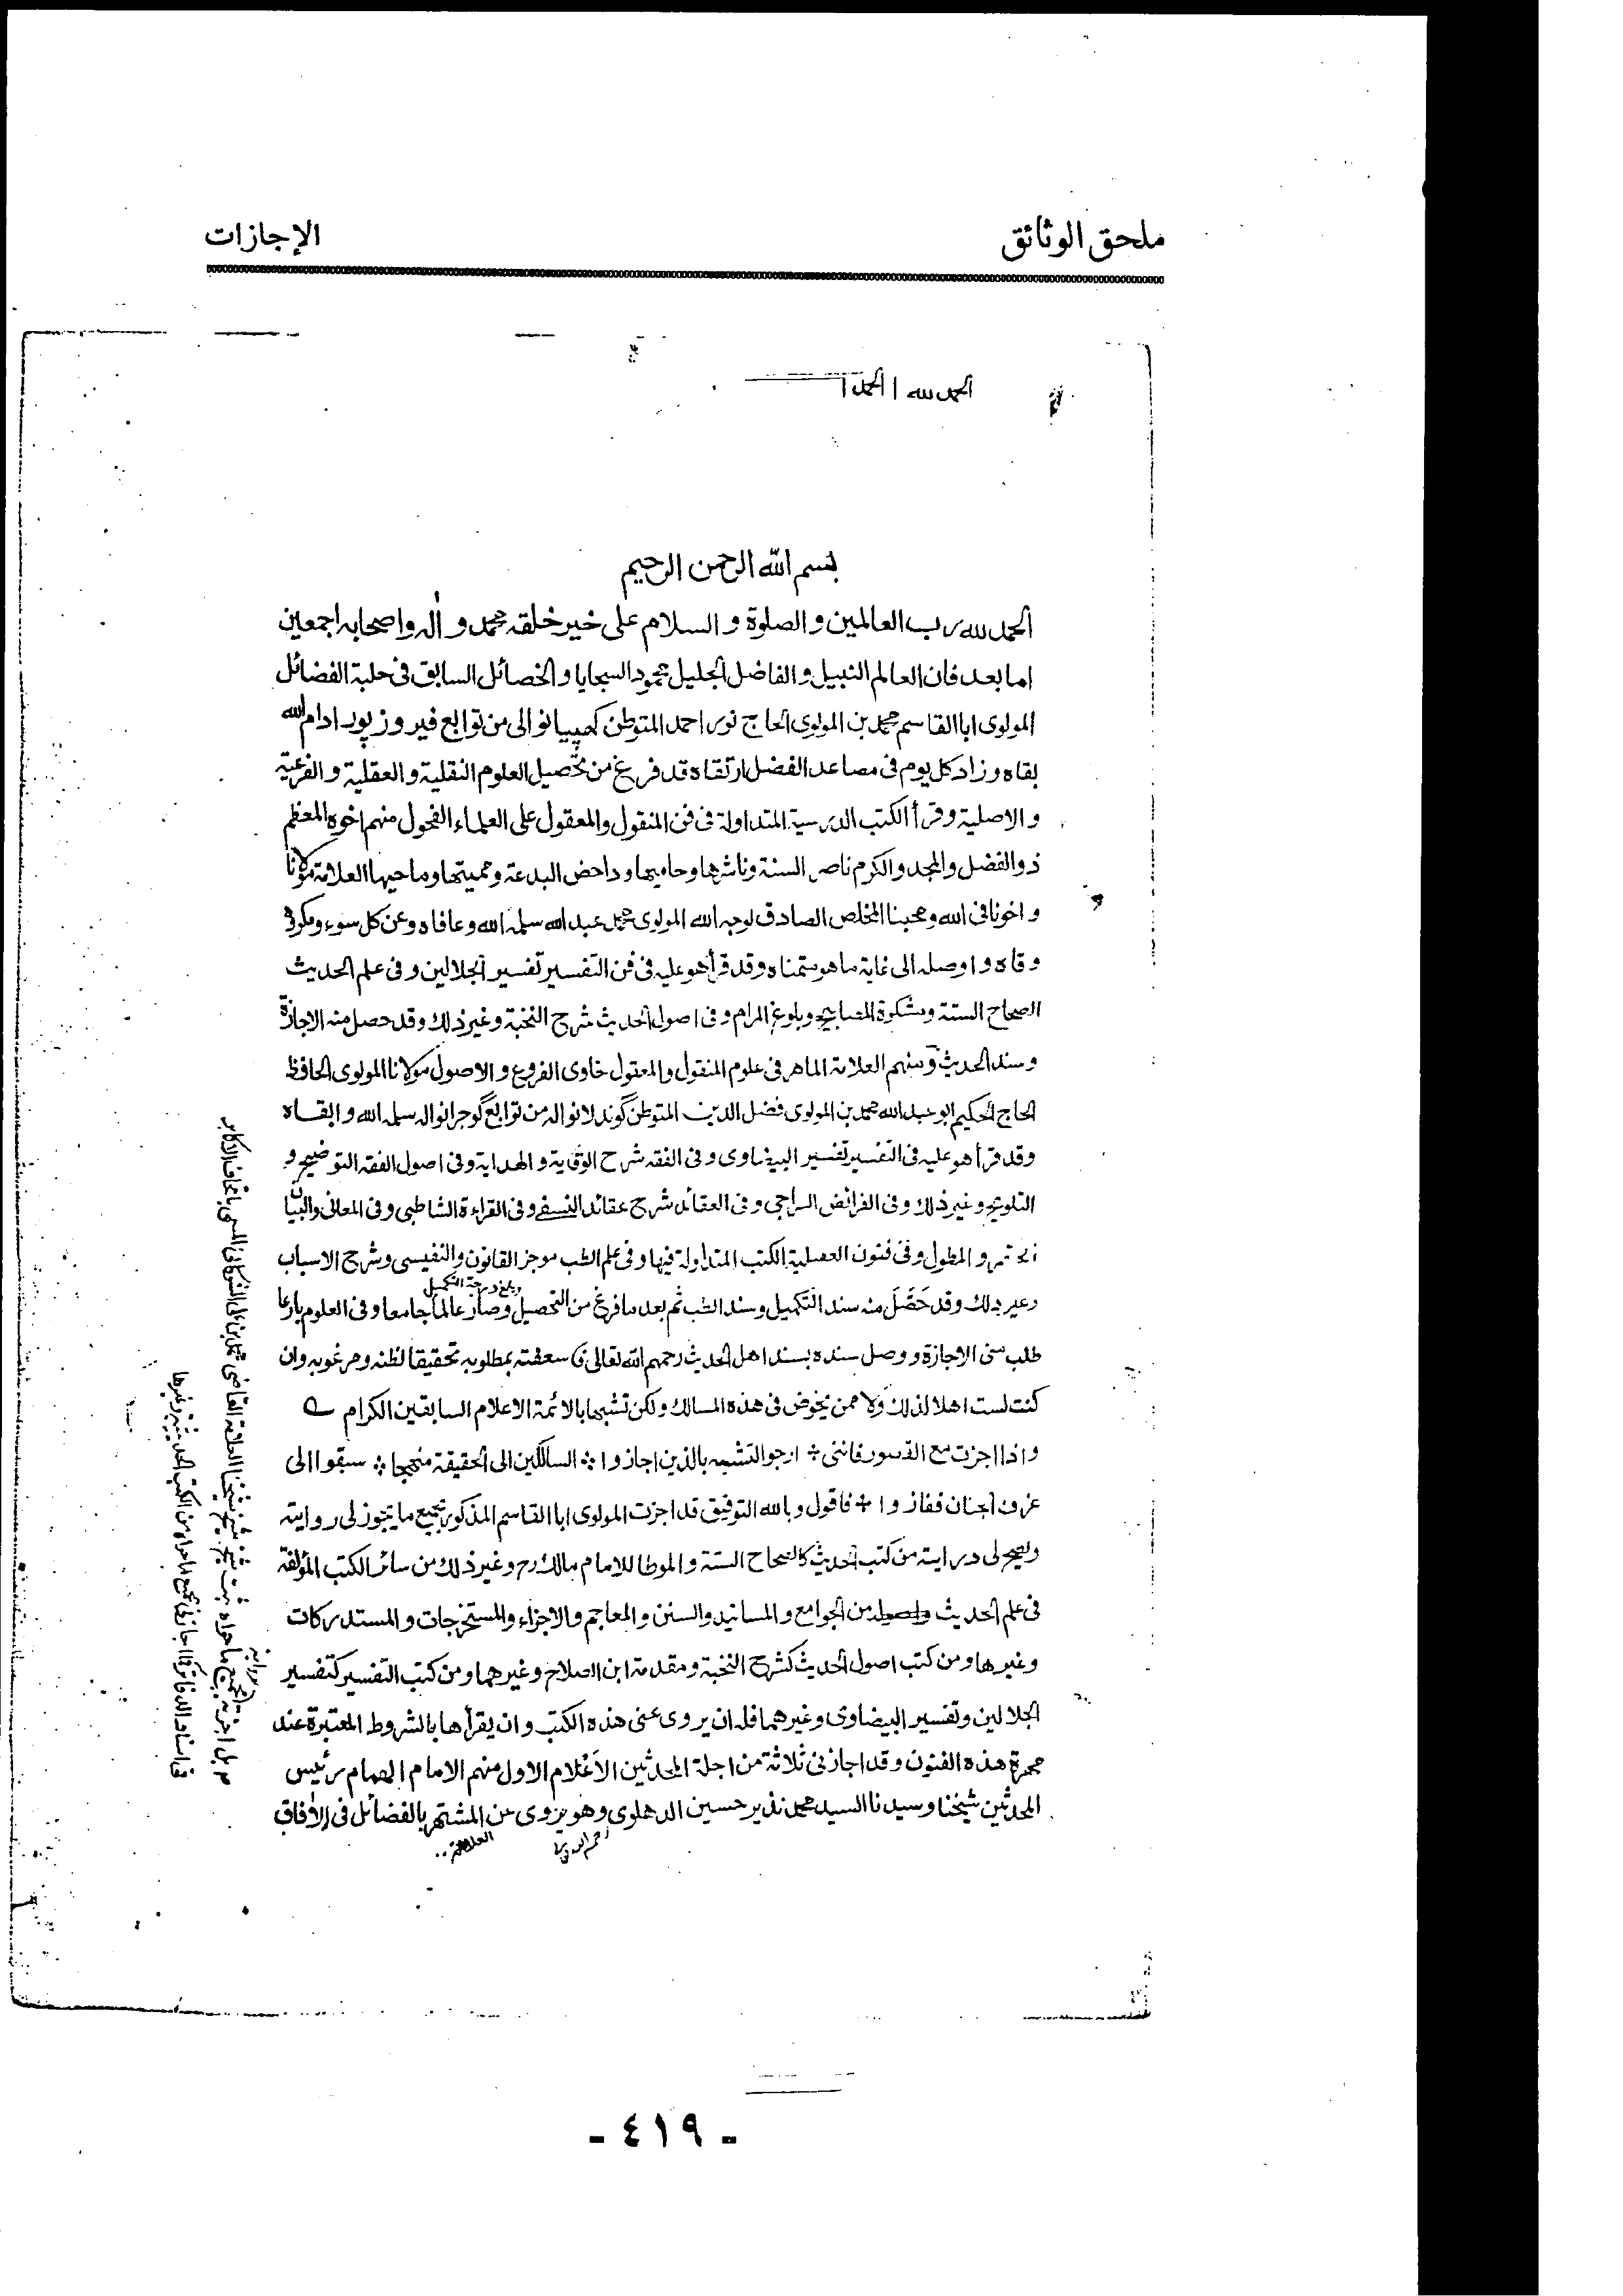 ملحق الوثائق
الإجازات
الحمد لله الحمد
بسم الله الرحمن الرحيم
الحمد لله رب العالمين والصلوة والسلام على خير خلقه محمد وآله واصحابه اجمعين
اما بعد فان العالم النبيل والفاضل الجليل محمود السجايا والخصائل السابق فى حلبة الفضائل
المولوى ابا القاسم محمد بن المولوى الحاج نور احمد المتوطن كهپيانوالى من توابع فيروزپور ادام الله
بقاه وزاد كل يوم فى مصاعد الفضل ارتقاه قد فرغ من تحصيل العلوم النقلية والعقلية والفرعية
والاصلية وقرأ الكتب الدرسية المتداولة فى فن المنقول والمعقول على العلماء الفحول منهم اخوه المعظم
ذو الفضل والمجد والكرم ناصر السنة وناشرها وحاميها وداحض البدعة ومميتها وماحيها العلامة مولانا
واخونا فى الله ومحبنا المخلص الصادق لوجه الله المولوى محمد عبد الله سلمه الله وعافاه وعن كل سوء ومكروه
وقاه واوصله الى غاية ما هو متمناه وقد قرأ هو عليه فى فن التفسير تفسير الجلالين وفى علم الحديث
الصحاح الستة ومشكوة المصابيح وبلوغ المرام وفى اصول الحديث شرح النخبة وغير ذلك وقد حصل منه الاجازة
وسند الحديث ومنهم العلامة الماهر فى علوم المنقول والمعقول حاوى الفروع والاصول مولانا المولوى الحافظ
الحاج الحكيم ابو عبد الله محمد بن المولوى فضل الدين المتوطن گوندلانواله من توابع گوجرانواله سلمه الله وابقاه
وقد قرأ هو عليه فى التفسير تفسير البيضاوى وفى الفقه شرح الوقاية والهداية وفى اصول الفقه التوضيح و
التلويح وغير ذلك وفى الفرائض السراجى وفى العقائد شرح عقائد النسفى وفى القراءة الشاطبى وفى المعانى والبيان
المختصر والمطول وفى فنون العقلية الكتب المتداولة فيها وفى علم الطب موجز القانون والنفيسى وشرح الاسباب
وغير ذلك وقد حَصَّلَ منه سند التكميل وسند الطب ثم بعد ما فرغ من التحصيل وبلغ درجة التكميل وصار عالما جامعا وفى العلوم بارعا
طلب منى الاجازة ووصل سنده بسند اهل الحديث رحمهم الله تعالى فاسعفته بمطلوبه تحقيقا لظنه ومرغوبه وان
كنت لست اهلا لذلك ولا ممن يخوض فى هذه المسالك ولكن تشبها بالائمة الاعلام السابقين الكرام
واذا اجزت مع القصور فاننى ؞ ارجو التشبه بالذين اجازوا ؞ السالكين الى الحقيقة منهجا ؞ سبقوا الى
غرف الجنان ففازوا ؞ فاقول وبالله التوفيق قد اجزت المولوى ابا القاسم المذكور بجميع ما يجوز لى روايته
ويصح لى درايته من كتب الحديث كالصحاح الستة والموطا للامام مالك رح وغير ذلك من سائر الكتب المؤلفة
فى علم الحديث واصوله من الجوامع والمسانيد والسنن والمعاجم والاجزاء والمستخرجات والمستدركات
وغيرها ومن كتب اصول الحديث كشرح النخبة ومقدمة ابن الصلاح وغيرهما ومن كتب التفسير كتفسير
الجلالين وتفسير البيضاوى وغيرهما فله ان يروى عنى هذه الكتب وان يقرأها بالشروط المعتبرة عند
مهرة هذه الفنون وقد اجازنى ثلاثة من اجلة المحدثين الاَعْلام الاول منهم الامام الهمام رئيس
المحدثين شيخنا وسيدنا السيد محمد نذير حسين الدهلوى وهو يروى عن المشتهر بالفضائل فى الآفاق
العلامة
بل اجزته برواية جميع ما حواه ثبت شيخ شيخ شيخنا العلامة القاضى محمد بن على الشوكانى المسمى باتحاف الاكابر
- ٤١٩ -